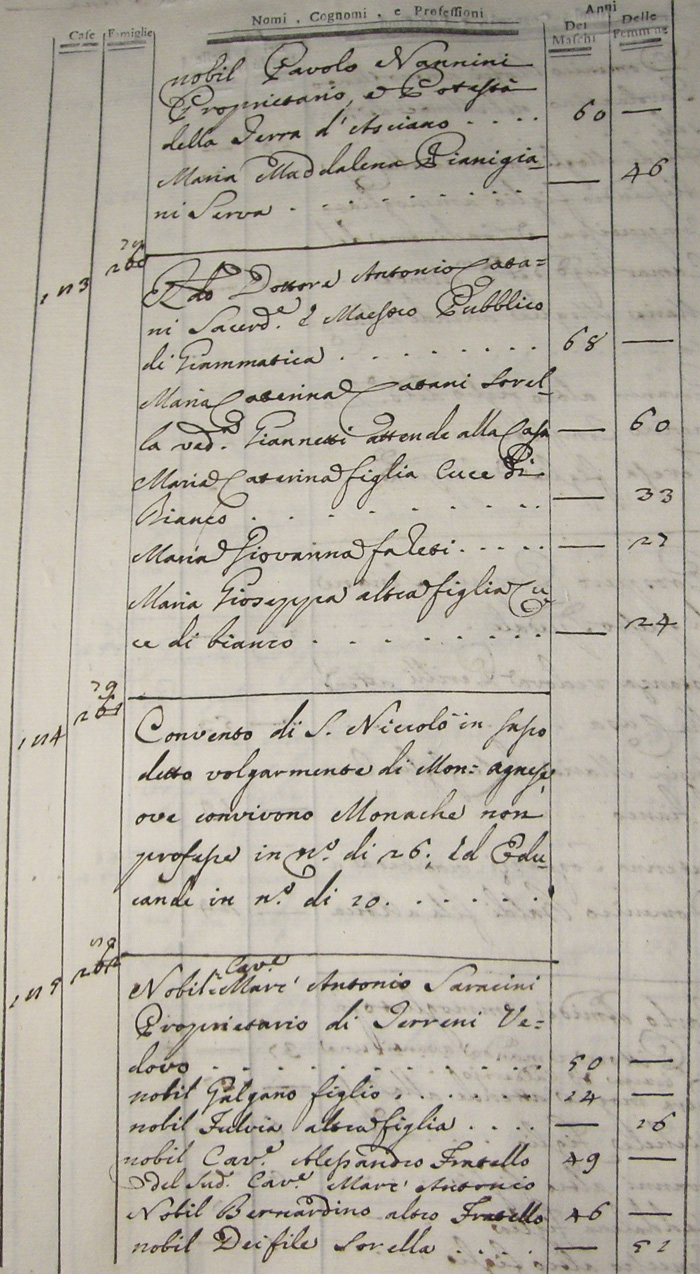 Case Famiglie Nomi, Cognomi, e Professioni Anni Dei Maschi Delle Femmine
nobil Pavolo Nannini
Proprietario, e Potestà
della Terra d'Asciano . . . . 60 —
Maria Maddalena Pianigia-
ni Serva . . . . . . . — 46
Dottore Antonio Catta=
ni Sacerd.e è Maestro Pubblico
di Grammatica . . . . . . . 68 —
Maria Caterina Catani Sorel-
la ved.a Giannetti attende alla Casa — 60
Maria Caterina figlia Cuce di
Bianco . . . . . . . — 33
Maria Giovanna . . . . — 27
Maria Gioseppa altra figlia Cu
ce di bianco . . . . . . . — 24
Convento di S. Niccolò in sasso
detto volgarmente di Mon= agnese
ove convivono Monache non
professe in n.o di 26; Ed Edu-
cande in n.o di 20. . . . . .
Nobil Cav.e Marc' Antonio Saracini
Proprietario di Terreni Ve=
dovo . . . . . . . . . 50 —
nobil Galgano figlio . . . . . 24 —
nobil Fulvia altra figlia . . . . — 26
nobil Cav.e Alessandro Fratello 49 —
del Sud.o Cav.e Marc' Antonio
Nobil Bernardino altro Fratello 46 —
nobil Deifile Sorella . . . . . — 51